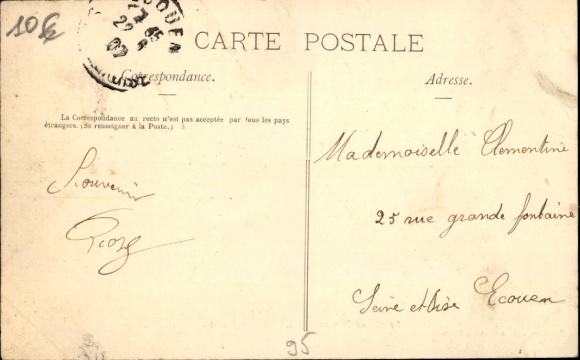 10€
OUEN
17 45
22 8
07
CARTE POSTALE
Correspondance.
Adresse.
La Correspondance au recto n'est pas acceptée par tous les pays
étrangers. (Se renseigner à la Poste.)
Souvenir
Mademoiselle Clementine
25 rue grande fontaine
Seine et Oise Ecouen
95